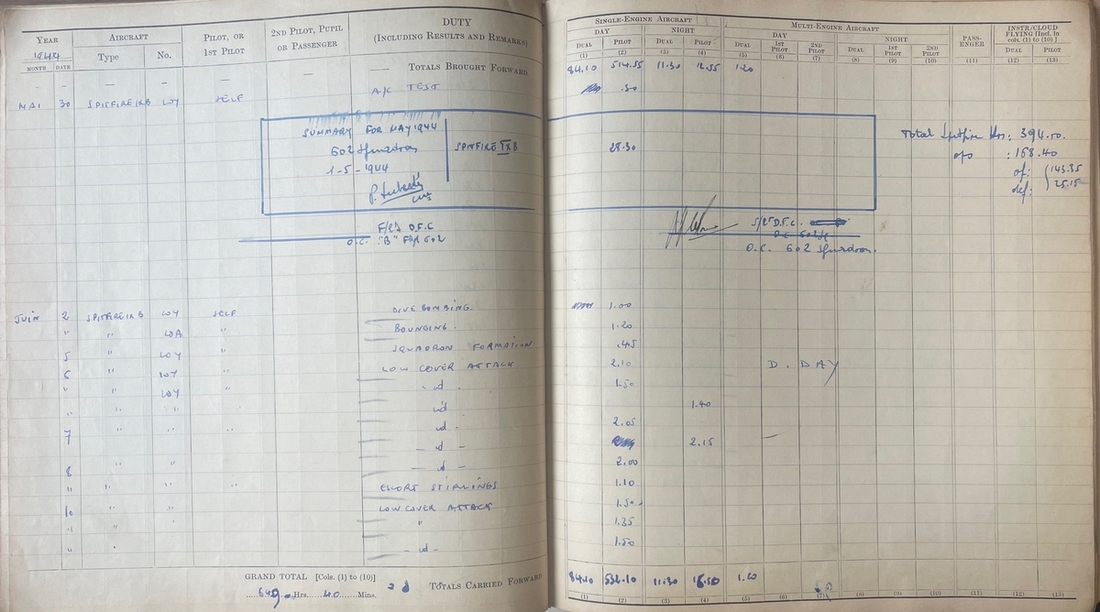 YEAR
1944
MONTH DATE
AIRCRAFT
Type No.
PILOT, OR
1ST PILOT
2ND PILOT, PUPIL
OR PASSENGER
DUTY
(INCLUDING RESULTS AND REMARKS)
SINGLE-ENGINE AIRCRAFT
DAY NIGHT
DUAL PILOT DUAL PILOT
(1) (2) (3) (4)
MULTI-ENGINE AIRCRAFT
DAY NIGHT
DUAL 1ST PILOT 2ND PILOT DUAL 1ST PILOT 2ND PILOT
(5) (6) (7) (8) (9) (10)
PASS-
ENGER
(11)
INSTR/CLOUD
FLYING [Incl. in
cols. (1) to (10)]
DUAL PILOT
(12) (13)
— — — — — TOTALS BROUGHT FORWARD 84.10 514.55 11.30 12.55 1.20
MAI 30 SPITFIRE IXB LOY SELF A/C TEST .30
SUMMARY FOR MAY 1944
602 Squadron SPITFIRE IXB 28.30
1-5-1944
Total Spitfire Hrs: 394.50.
ops : 168.40
of: 143.35
def: 25.15
F/Lt D.F.C
O.C. "B" Flt 602
S/Lr D.F.C.
O.C. 602 Squadron.
JUIN 2 SPITFIRE IXB LOY SELF DIVE BOMBING. 1.00
" " LOA " BOUNDING. 1.20
5 " LOY " SQUADRON FORMATION .45
6 " LOY LOW COVER ATTACK 2.10 D. DAY
" " LOY " - id - 1.50
" " " id - 1.40
7 " " " id - 2.05
- id - 2.15 —
8 " " - id - 2.00
" " " " ESCORT STIRLINGS 1.10
10 " " LOW COVER ATTACK 1.50
" " " 1.35
" " - id - 1.50
GRAND TOTAL [Cols. (1) to (10)]
649 Hrs. 40 Mins.
TOTALS CARRIED FORWARD 84.10 532.10 11.30 16.50 1.20
(1) (2) (3) (4) (5) (6) (7) (8) (9) (10) (11) (12) (13)